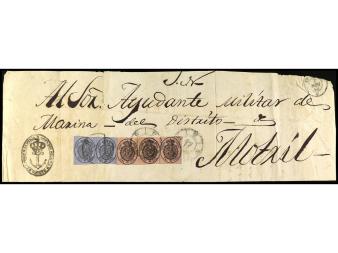 S. N.
Al Sor. Ayudante Militar de
Marina - del Distrito - de
Motril -